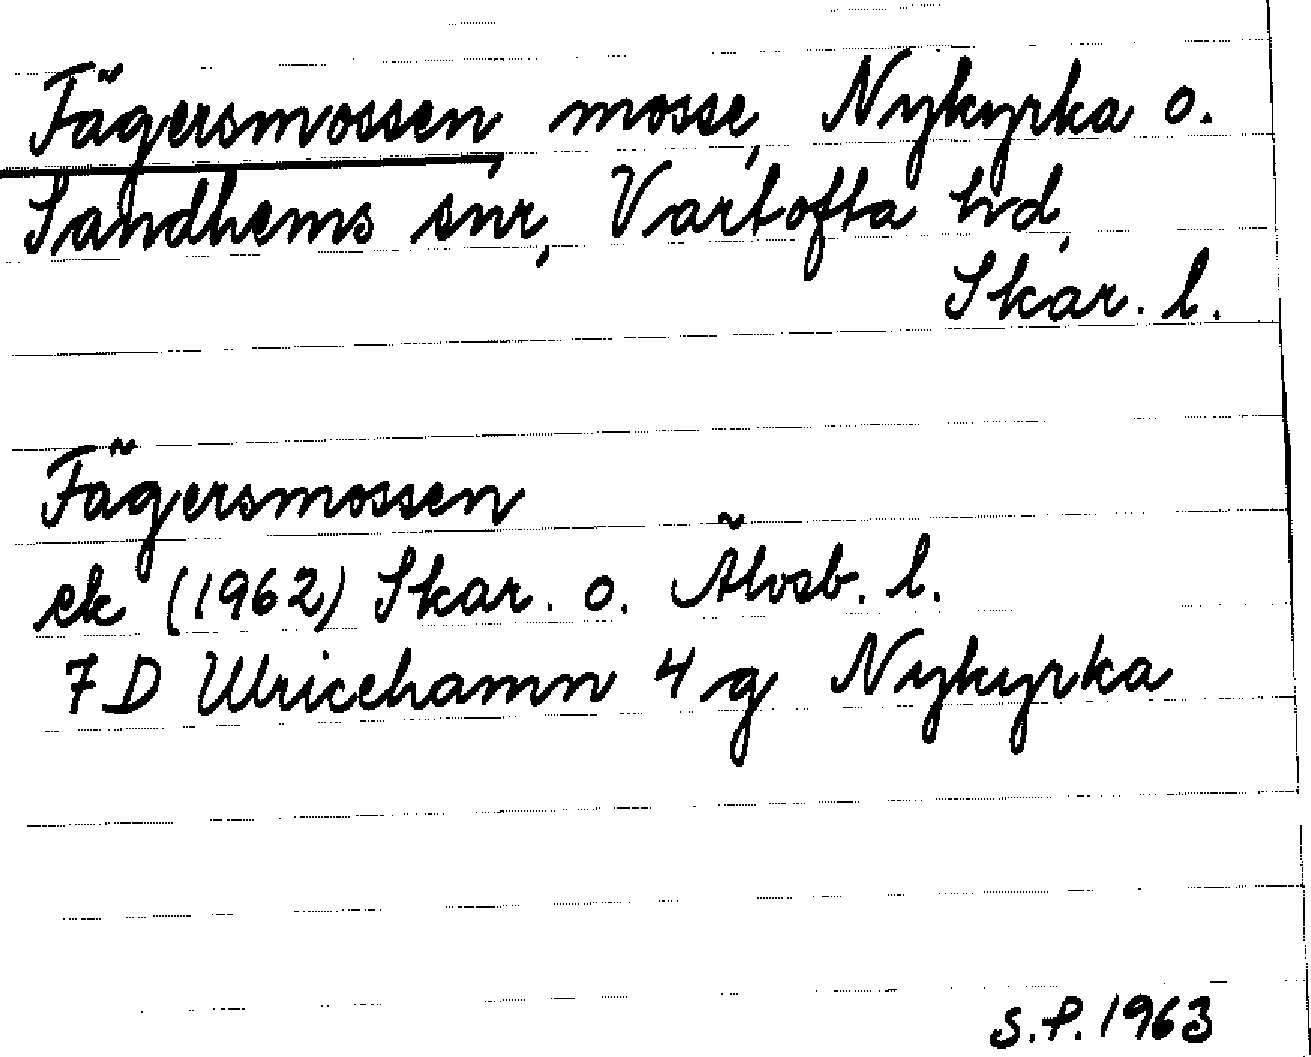 Fägersmossen, mosse, Nykyrka o.
Sandhems snr, Vartofta hd,
Skar. l.
Fägersmossen
ek (1962) Skar. o. Älvsb. l.
7 D Ulricehamn 4 g Nykyrka
S.P. 1963